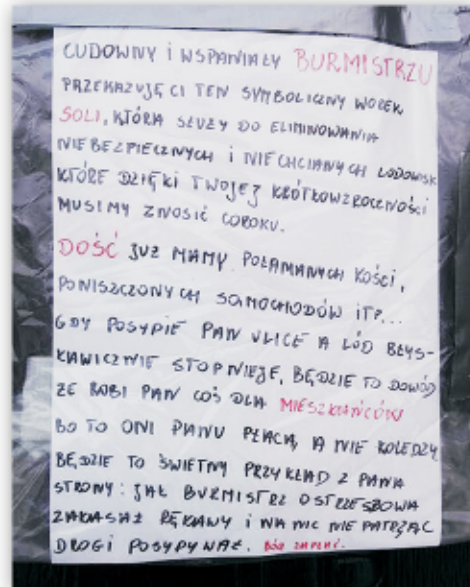 CUDOWNY i WSPANIAŁY BURMISTRZU
PRZEKAZUJĘ CI TEN SYMBOLICZNY WOREK
SOLI, KTÓRA SŁUŻY DO ELIMINOWANIA
NIEBEZPIECZNYCH i NIECHCIANYCH LODOWISK
KTÓRE DZIĘKI TWOJEJ KRÓTKOWZROCZNOŚCI
MUSIMY ZNOSIĆ COROKU.
DOŚĆ JUŻ MAMY POŁAMANYCH KOŚCI,
PONISZCZONYCH SAMOCHODÓW iTP...
GDY POSYPIE PAN ULICE A LÓD BŁYS-
KAWICZNIE STOPNIEJE, BĘDZIE TO DOWÓD
ŻE ROBI PAN COŚ DLA MIESZKAŃCÓW
BO TO ONI PANU PŁACĄ, A NIE KOLEDZY
BĘDZIE TO ŚWIETNY PRZYKŁAD Z PANA
STRONY: JAK BURMISTRZ OSTRZESZOWA
ZAKASAŁ RĘKAWY i NA NIC NIE PATRZĄC
DROGI POSYPYWAŁ. BÓG ZAPŁAĆ.